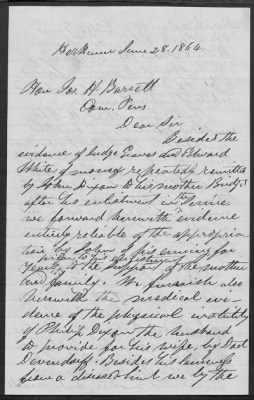 Herkimer June 28. 1864.
Hon Jos H Barrett
Com. Pens.
Dear Sir
Besides the
evidence of Judge Graves and Edward
White of money repeatedly remitted
by John Dixon to his mother Bridget
after his enlistment in the service
we forward herewith evidence
entirely reliable of the appropria
tion by John of his earnings for
years prior to his enlistment to the support of the mother
and family. We furnish also
herewith the medical evi-
dence of the physical inability
of Philip Dixon the husband
to provide for his wife, by Doct
Devendorf. Besides his lameness
from a diseased hip we by the